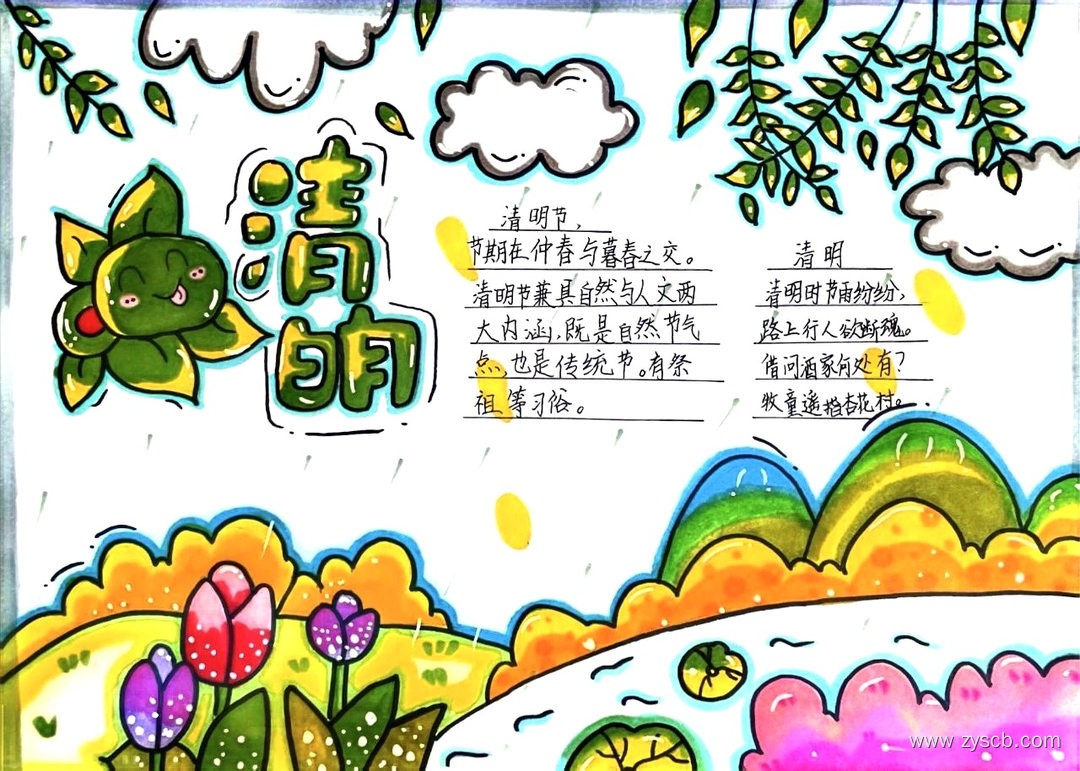 清明
清明节,
节期在仲春与暮春之交。
清明节兼具自然与人文两
大内涵,既是自然节气
点,也是传统节。有祭
祖等习俗。
清明
清明时节雨纷纷,
路上行人欲断魂。
借问酒家何处有?
牧童遥指杏花村。
www.zyscb.com